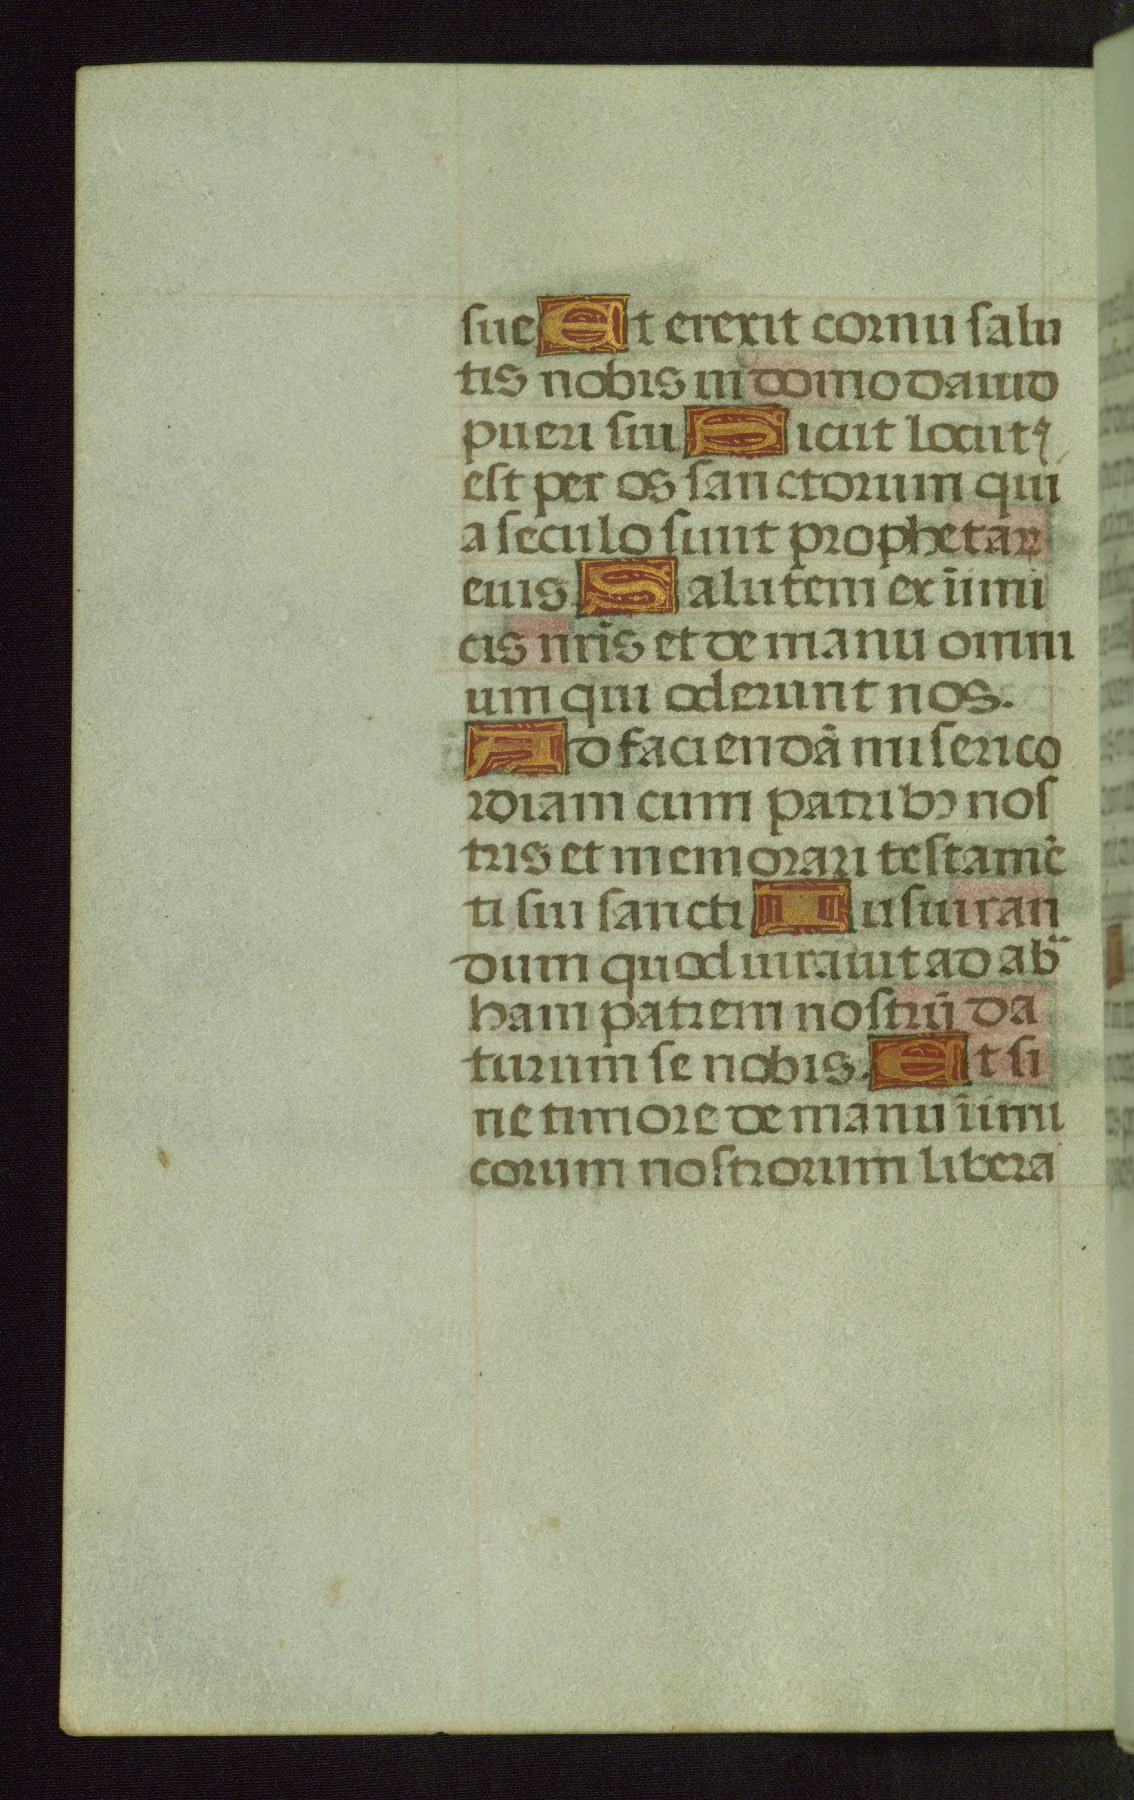 sue Et erexit cornu salu
tis nobis in domo dauid
pueri sui Sicut locutꝰ
est per os sanctorum qui
a seculo sunt prophetar
eius. Salutem ex inimi
cis nr̄is et de manu omni
um qui oderunt nos.
Ad faciendā miserico
rdiam cum patribꝫ nos
tris et memorari testamē
ti sui sancti Iusiuran
dum quod iurauit ad ab
ham patrem nostrū da
turum se nobis. Et si
ne timore de manu inimi
corum nostrorum libera